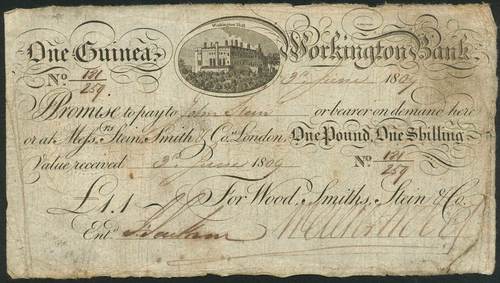 Workington Hall
One Guinea. Workington Bank
No. 181/259 2d June 1809
I Promise to pay to John Stein or bearer on demand here
or at Messrs Stein, Smith & Co. London, One Pound, One Shilling
Value received 2d June 1809 No. 181/259
£1,,1,,- For Wood, Smiths, Stein & Co.
Entd